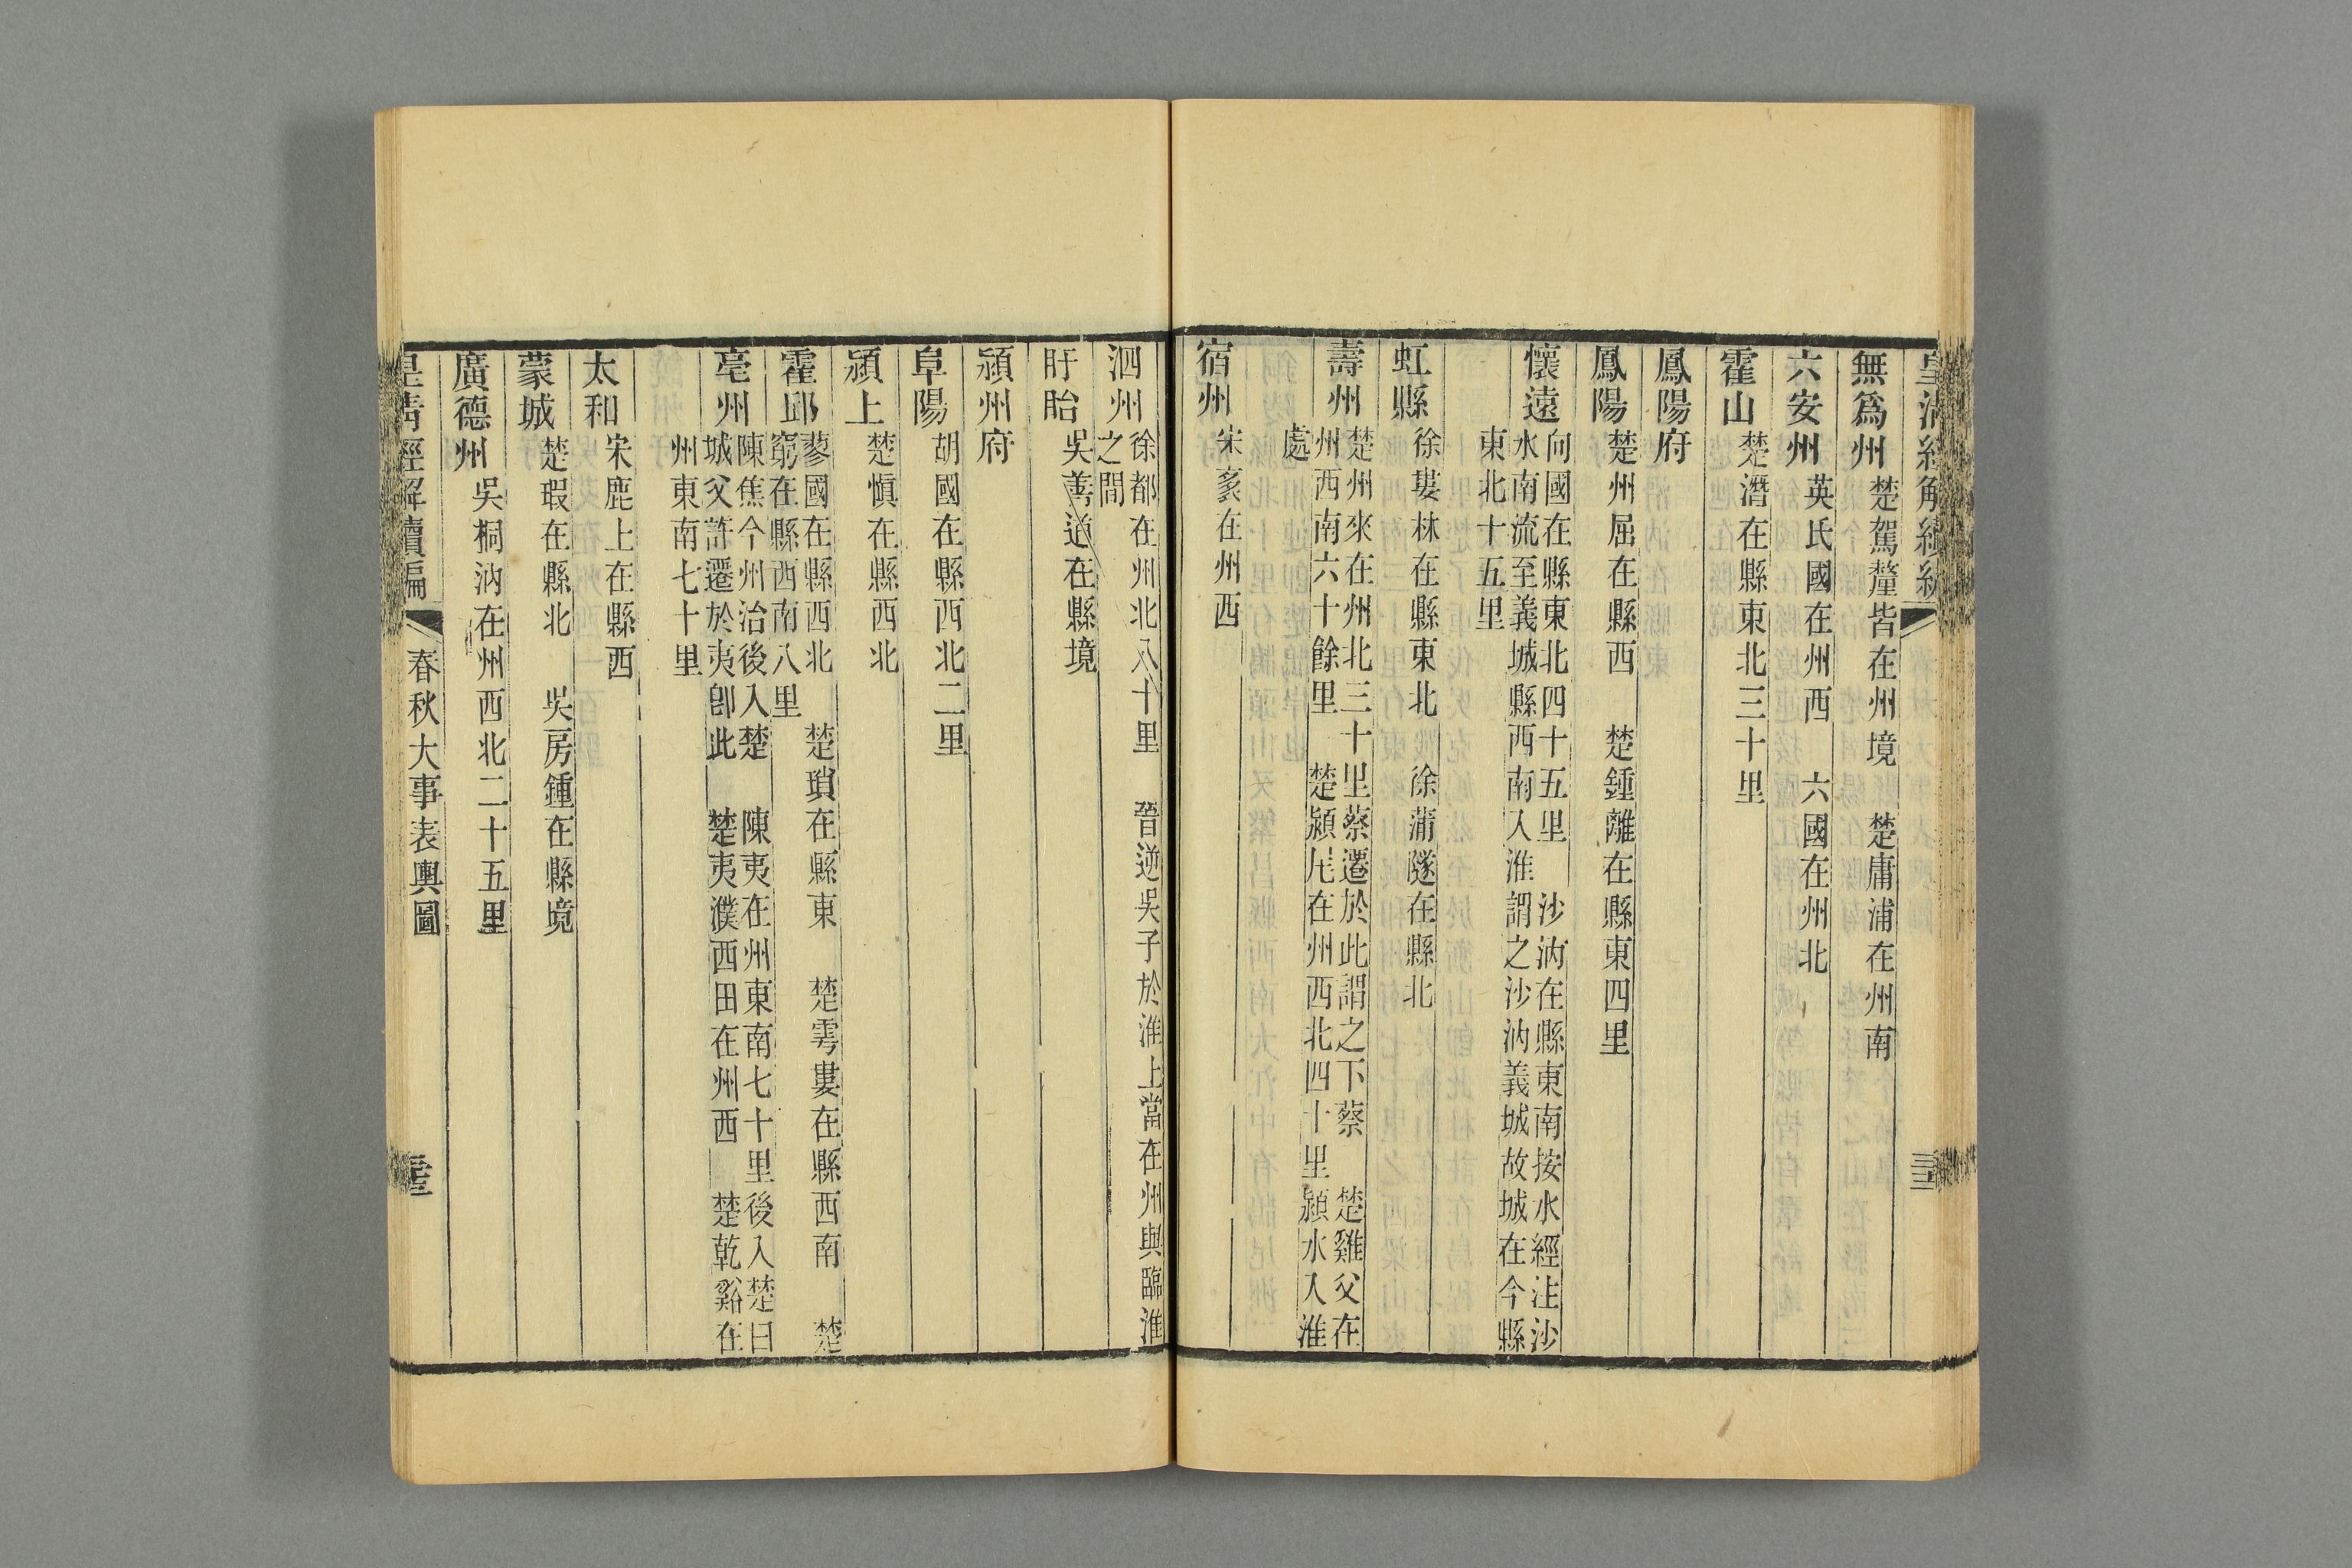 無爲州 楚駕釐皆在州境 楚庸浦在州南
六安州 英氏國在州西 六國在州北
霍山 楚潛在縣東北三十里
鳳陽府
鳳陽 楚州屈在縣西 楚鍾離在縣東四里
懷遠 向國在縣東北四十五里 沙汭在縣東南按水經注沙
水南流至義城縣西南入淮謂之沙汭義城故城在今縣
東北十五里
虹縣 徐婁林在縣東北 徐蒲隧在縣北
壽州 楚州來在州北三十里蔡遷於此謂之下蔡 楚雞父在
州西南六十餘里 楚潁尾在州西北四十里潁水入淮
處
宿州 宋彭在州西
泗州 徐都在州北八十里 晉逆吳子於淮上當在州與臨淮
之間
盱眙 吳善道在縣境
潁州府
阜陽 胡國在縣西北二里
潁上 楚慎在縣西北
霍邱 蓼國在縣西北 楚瑣在縣東 楚雩婁在縣西南 楚
窮在縣西南八里
亳州 陳焦今州治後入楚 陳夷在州東南七十里後入楚曰
城父許遷於夷卽此 楚夷濮西田在州西 楚乾谿在
州東南七十里
太和 宋鹿上在縣西
蒙城 楚瑕在縣北 吳房鍾在縣境
廣德州 吳桐汭在州西北二十五里
皇清經解續編 春秋大事表輿圖